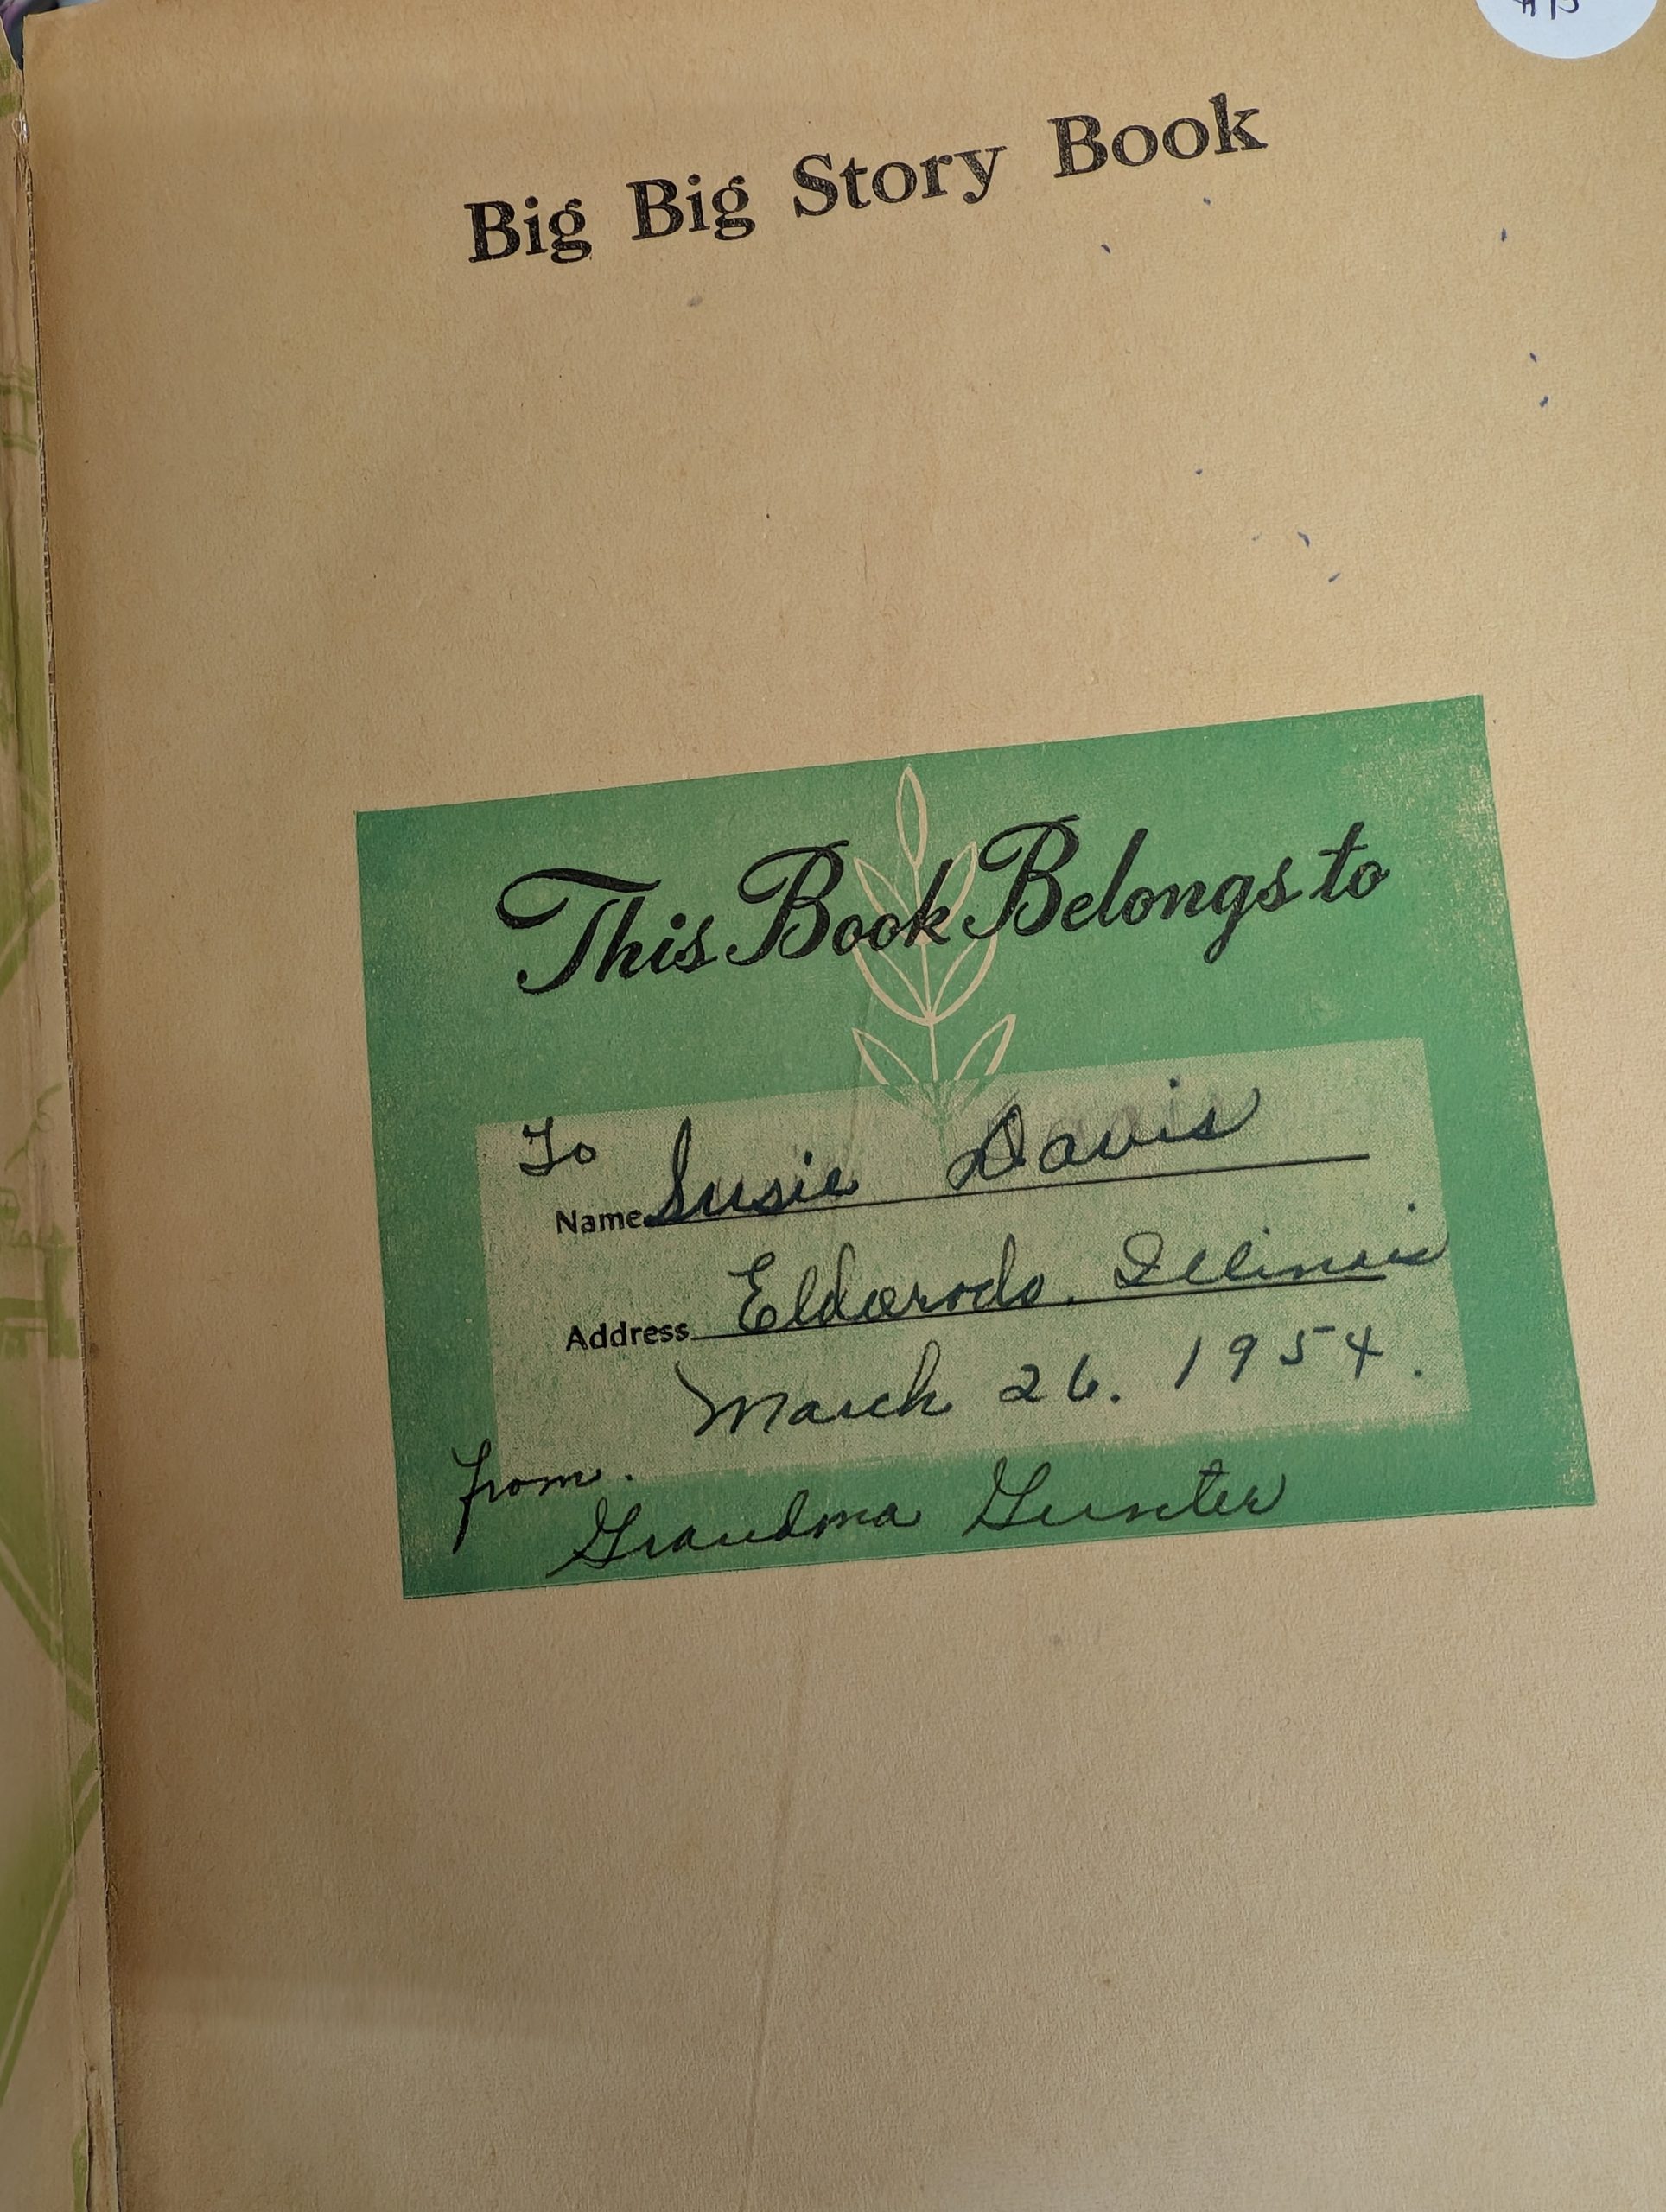 Big Big Story Book
This Book Belongs to
To
Name Susie Davis
Address Eldorado, Illinois
March 26. 1954.
from.
Grandma Gunter